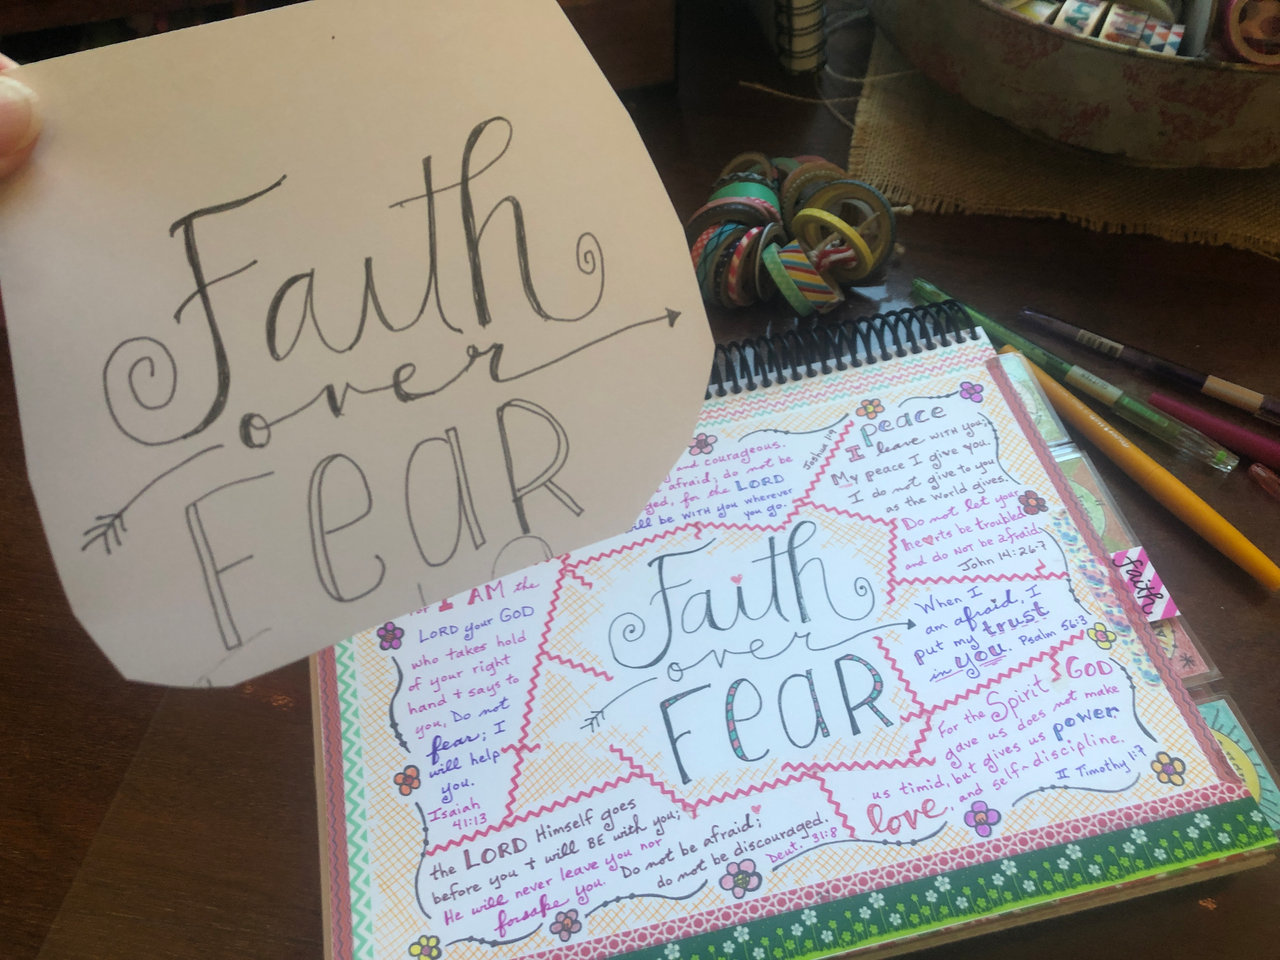 Faith
over
FeaR
and courageous.
afraid; do not be
for the LORD
will be WITH you wherever
you go.
Joshua 1:9
Peace
I leave WITH you;
My peace I give you.
I do not give to you
as the world gives.
Do not let your
hearts be troubled
and do NOT be afraid
John 14:26-7
I AM the
LORD your GOD
who takes hold
of your right
hand + says to
you, Do not
fear; I
will help
you.
Isaiah
41:13
Faith
over
FeaR
When I
am afraid, I
put my trust
in you. Psalm 56:3
faith
For the Spirit GOD
gave us does not make
us timid, but gives us power
love, and self-discipline.
II Timothy 1:7
the LORD Himself goes
before you + will BE with you;
He will never leave you nor
forsake you. Do not be afraid;
do not be discouraged.
Deut. 31:8